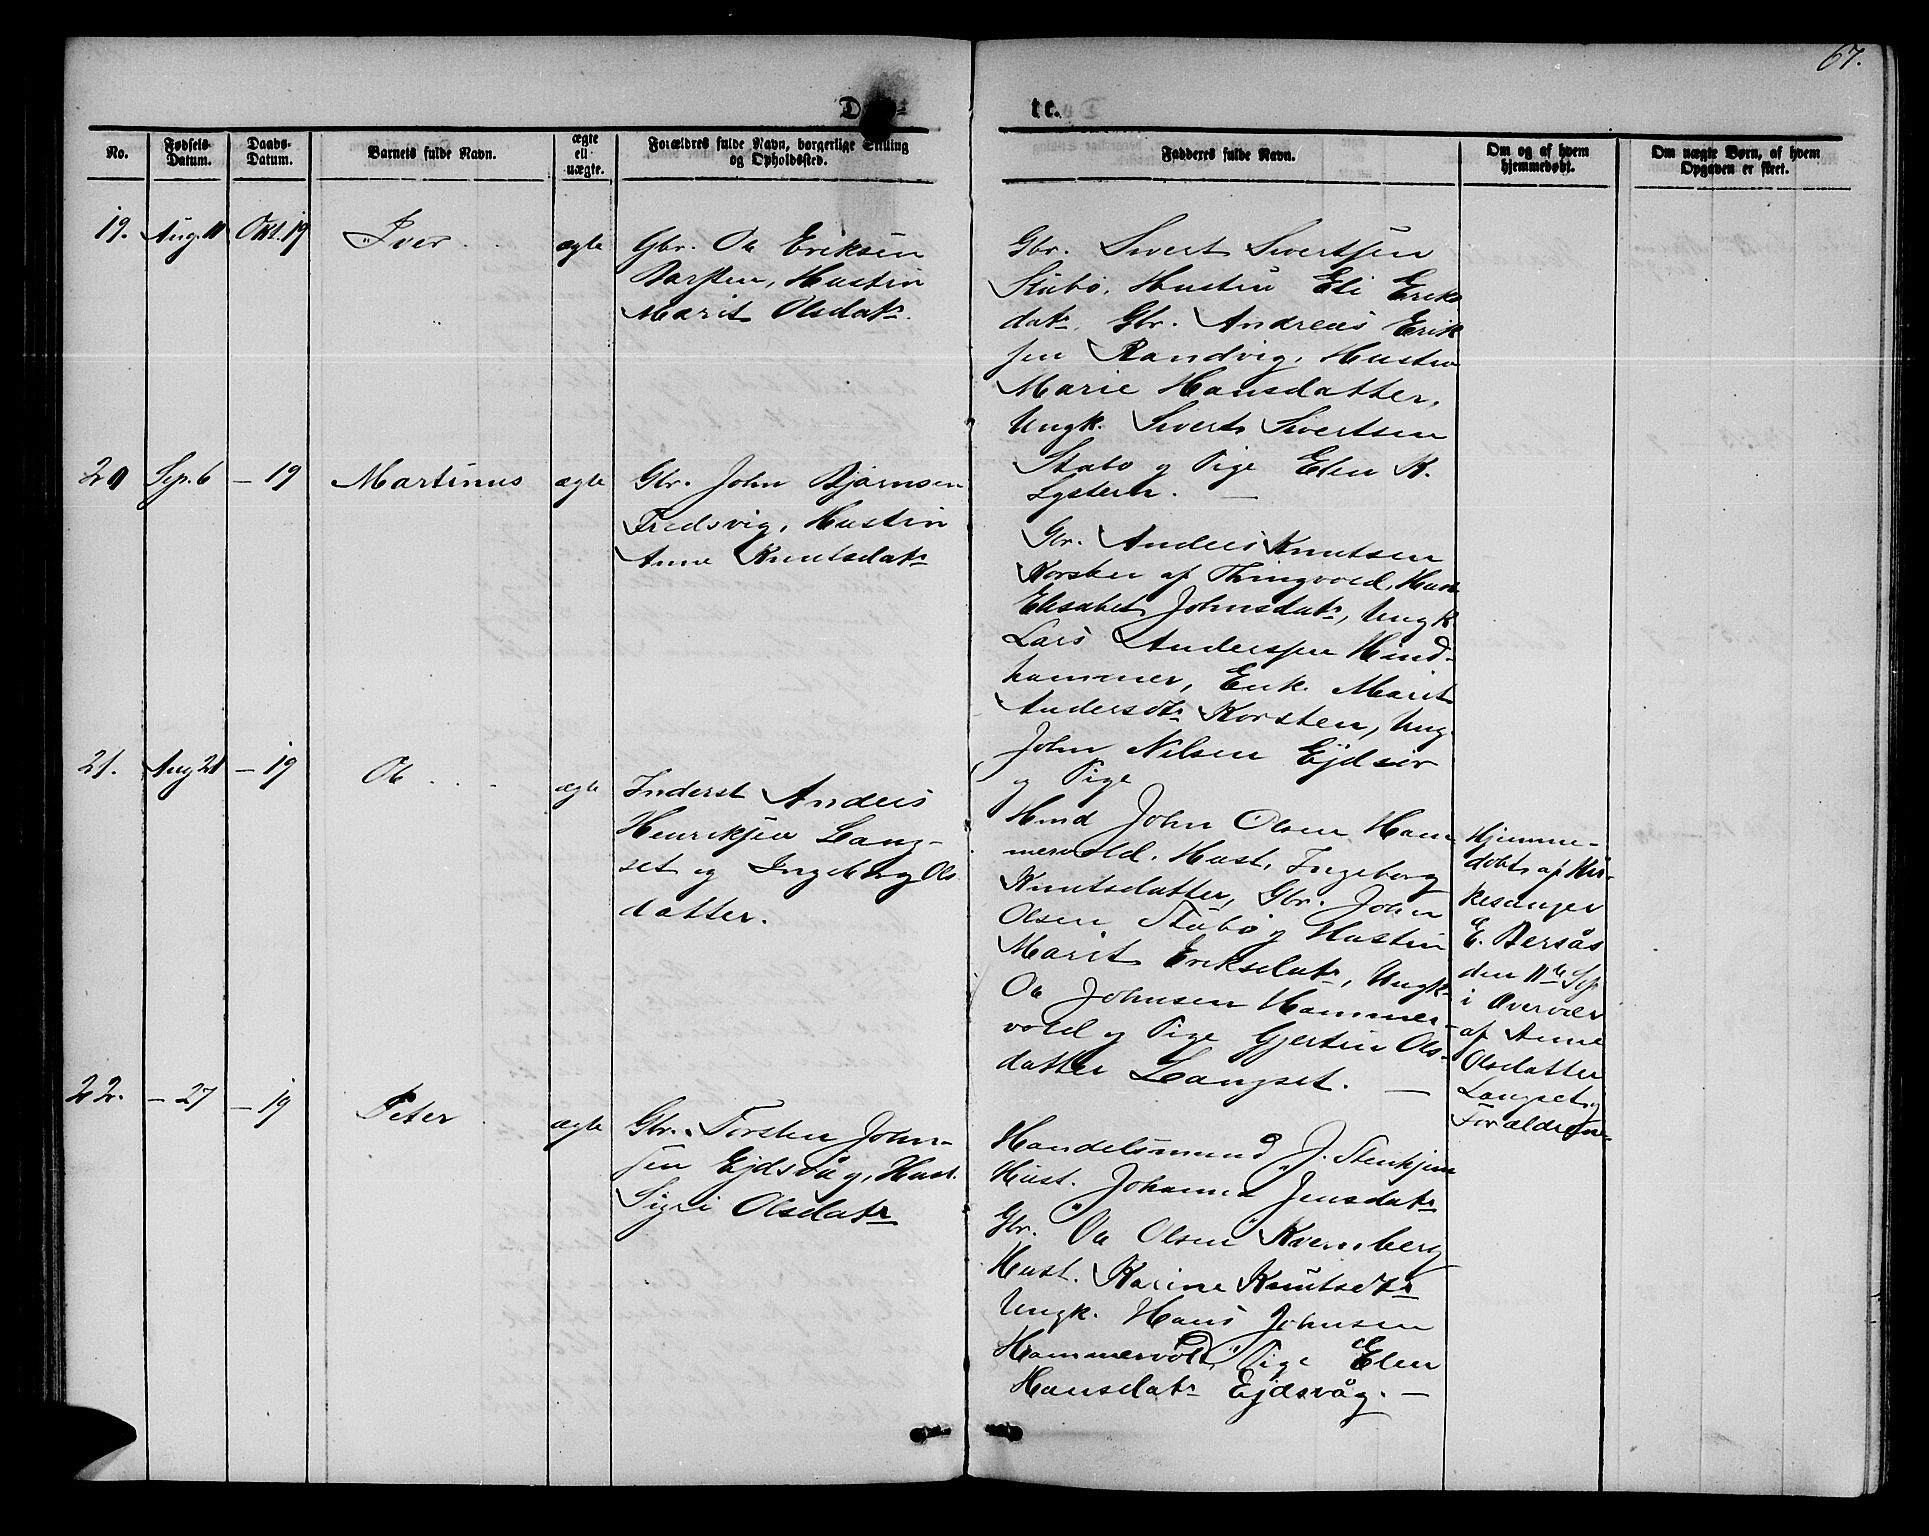 67.
Døbte.
No.
Fødsels-
Datum.
Daabs-
Datum.
Barnets fulde Navn.
ægte
ell
uægte.
Forældres fulde Navn, borgerlige Stilling
og Opholdssted.
Fadderes fulde Navn.
Om og af hvem
hjemmedøbt.
Om uægte Børn, af hvem
Opgaven er skeet.
19.
Aug. 11
Okt. 19
Iver
ægte
Gbr. Ole Eriksen
Hustru
Marit Olsdatr.
Gbr. Sivert Sivertsen
Stubø, Hustru Eli Eriks
datr. Gbr. Andreas Erik
sen Randvig, Hustru
Marie Hansdatter,
Ungk. Sivert Sivertsen
Stubø og Pige Elen K.
20
Sep. 6
— 19
Martinus
ægte
Gbr. John Bjørnsen
Fredsvig, Hustru
Anne Knutsdatr
Gbr. Anders Knutsen
Korsten af Thingvold, Hust
Elisabet Johnsdatr, Ungk
Lars Andersen Hind-
hammer, Enk. Marit
Andersdtr Korsten, Ung
John Nilsen Ejdsør
og Pige
21.
Aug 21
— 19
Ole
ægte
Inderst Anders
Henriksen Lang-
set og Ingeborg Ols
datter.
Hmd John Olsen Ham
mervold, Hust. Ingeborg
Knutsdatter, Gbr. John
Olsen Stubø og Hustru
Marit Eriksdatr, Ungk.
Ole Johnsen Hammer-
vold og Pige Gjertru Ols-
datter Langset. —
Hjemme-
døbt af Kir-
kesanger
E. Bersås
den 11te Sep
i Overvær
af Anne
Olsdatter
Langset og
Forældrene
22.
— 27
— 19
Peter
ægte
Gbr. Torsten John-
sen Ejdsvåg, Hust.
Sigri Olsdatr
Handelsmand J. Stenkjær
Hust. Johanna Jensdatr
Gbr. Ole Olsen Kvernberg
Hust. Karine Knutsdtr
Ungk. Hans Johnsen
Hammervold, Pige Elen
Hansdatr Ejdsvåg. —